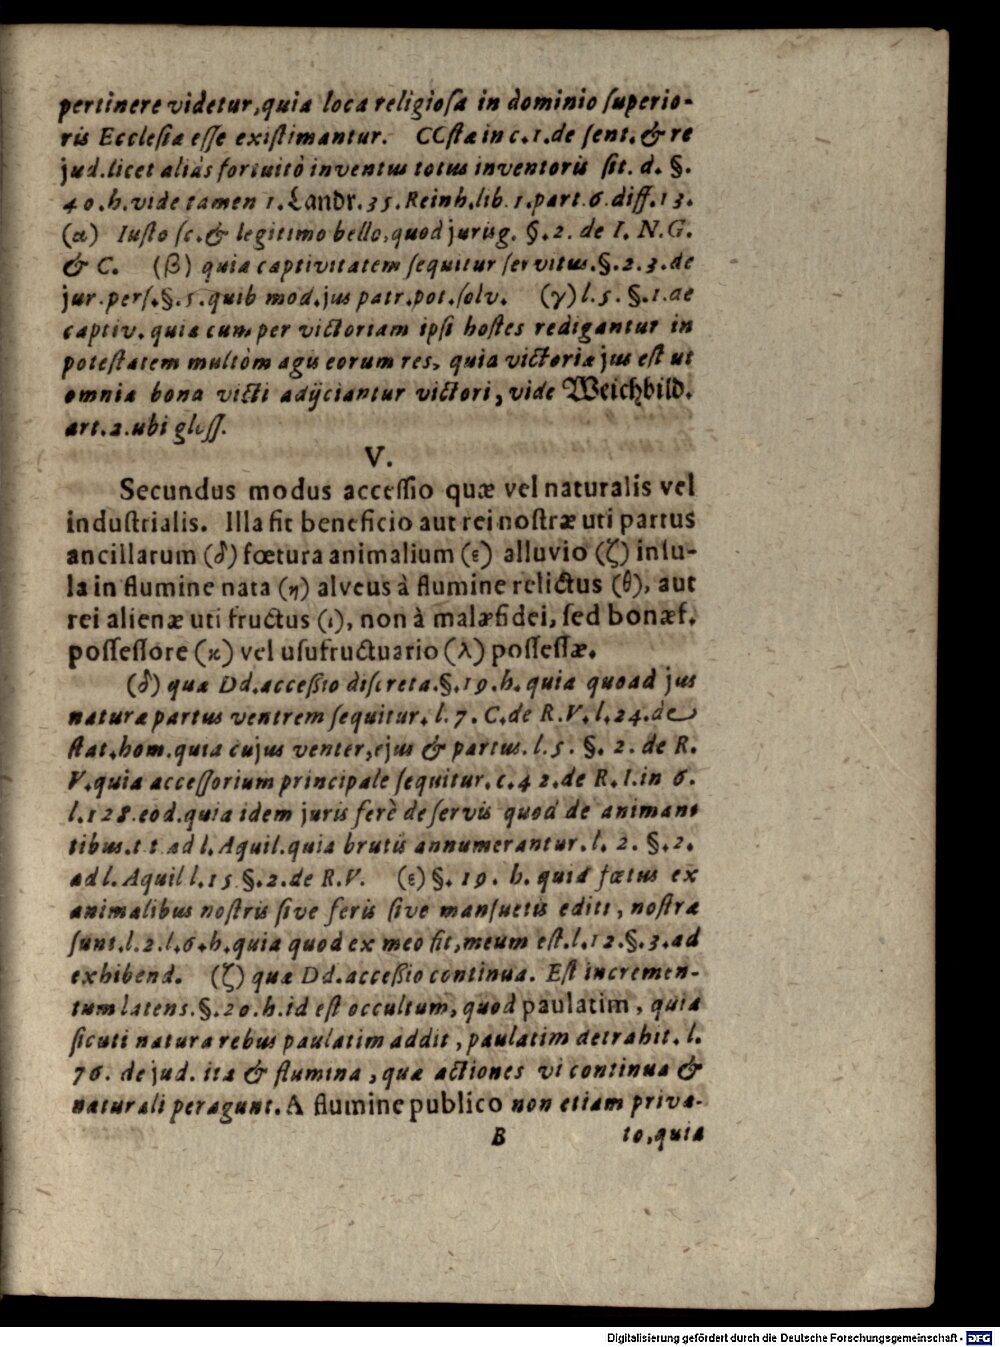 pertinere videtur, quia loca religiosa in dominio superio-
ris Ecclesiæ esse existimantur. CCstæ in c. 1. de sent. & re
jud. licet aliàs fortuitò inventus totus inventoris sit. d. §.
40. h. vide tamen 1. Landr. 35. Reinh. lib. 1. part. 6. diff. 13.
(α) Iusto sc. & legitimo bello, quod jurisg. §. 2. de I. N. G.
& C. (β) quia captivitatem sequitur servitus. §. 2. 3. de
jur. pers. §. 5. quib mod. jus patr. pot. solv. (γ) l. 5. §. 1. de
captiv. quia cum per victoriam ipsi hostes redigantur in
potestatem multòm agis eorum res, quia victoriæ jus est ut
omnia bona victi adijciantur victori, vide Weichbild.
art. 2. ubi gloss.
V.
Secundus modus accessio quæ vel naturalis vel
industrialis. Illa fit beneficio aut rei nostræ uti partus
ancillarum (δ) fœtura animalium (ε) alluvio (ζ) insu-
la in flumine nata (η) alveus à flumine relictus (θ), aut
rei alienæ uti fructus (ι), non à malæfidei, sed bonæf.
possessore (κ) vel usufructuario (λ) possessæ.
(δ) quæ Dd. accessio discreta. §. 19. h. quia quoad jus
naturæ partus ventrem sequitur. l. 7. C. de R. V. l. 24. de
stat. hom. quia cujus venter, ejus & partus. l. 5. §. 2. de R.
V. quia accessorium principale sequitur. c. 42. de R. I. in 6.
l. 128. eod. quia idem juris ferè de servis quod de animan-
tibus. t t ad l. Aquil. quia brutis annumerantur. l. 2. §. 2.
ad l. Aquil l. 15 §. 2. de R. V. (ε) §. 19. h. quia fœtus ex
animalibus nostris sive feris sive mansuetis editi, nostræ
sunt. l. 2. l. 6. h. quia quod ex meo fit, meum est. l. 12. §. 3. ad
exhibend. (ζ) quæ Dd. accessio continua. Est incremen-
tum latens. §. 20. h. id est occultum, quod paulatim, quia
sicuti natura rebus paulatim addit, paulatim detrahit. l.
76. de jud. ita & flumina, quæ actiones vi continua &
naturali peragunt. A flumine publico non etiam priva-
B to, quia
Digitalisierung gefördert durch die Deutsche Forschungsgemeinschaft - DFG